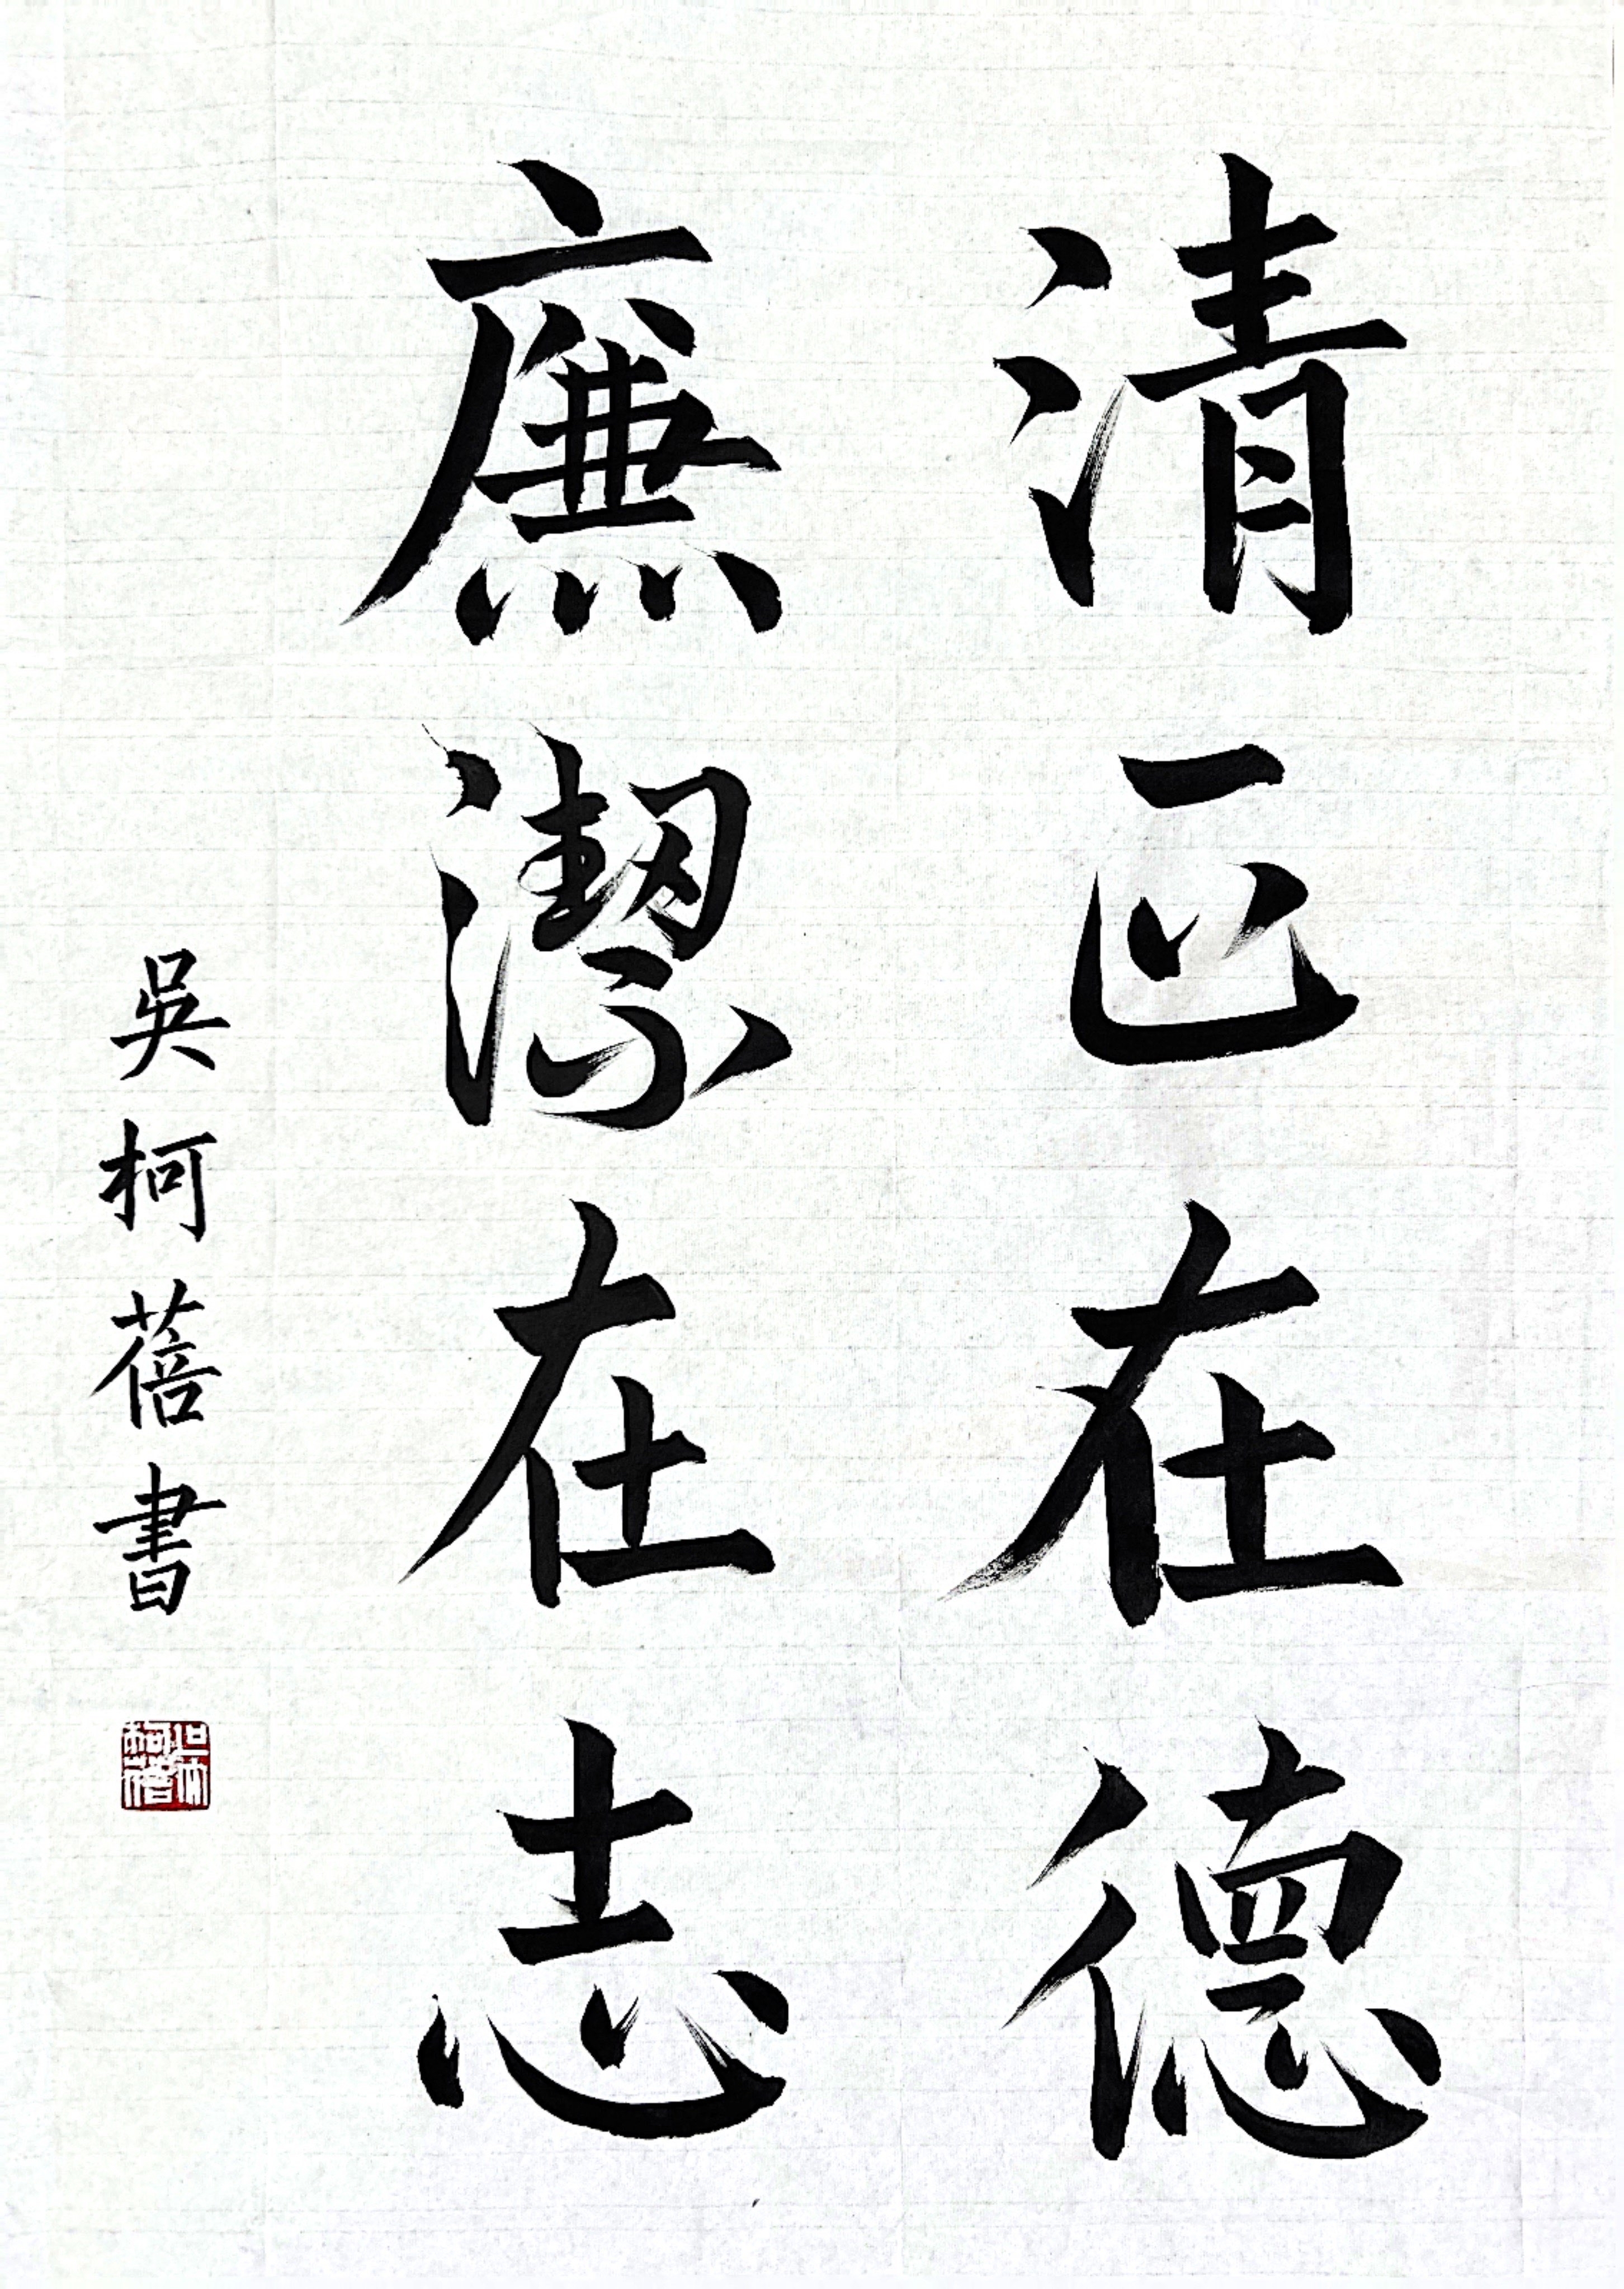 清正在德
廉潔在志
吳柯蓓書
吳柯蓓